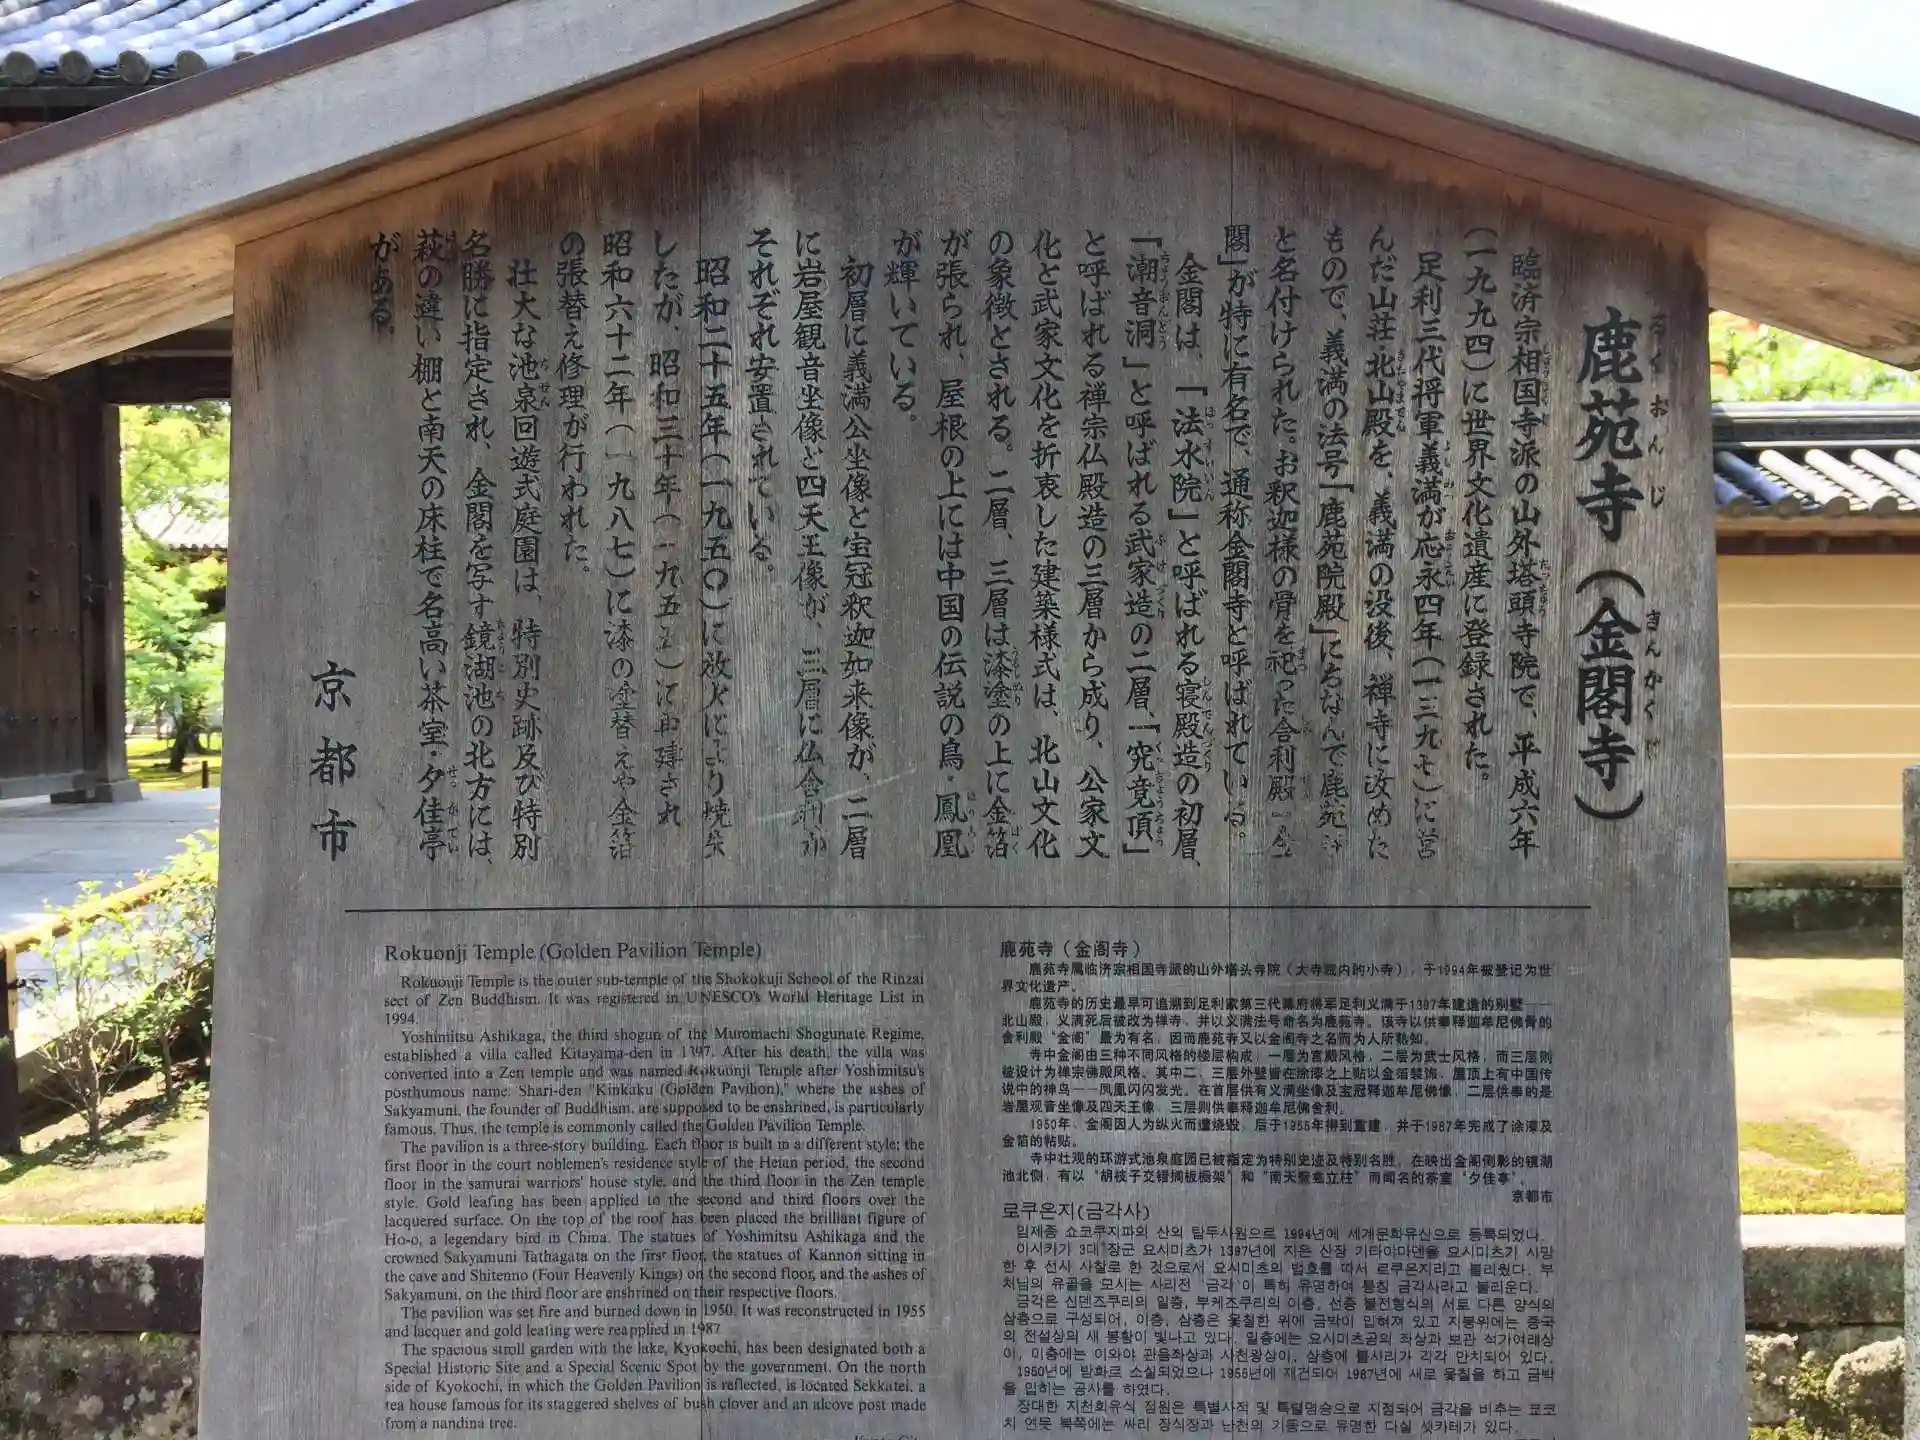 鹿苑寺（金閣寺）
臨済宗相国寺派の山外塔頭寺院で、平成六年
（一九九四）に世界文化遺産に登録された。
足利三代将軍義満が応永四年（一三九七）に営
んだ山荘・北山殿を、義満の没後、禅寺に改めた
もので、義満の法号「鹿苑院殿」にちなんで鹿苑寺
と名付けられた。お釈迦様の骨を祀った舎利殿「金
閣」が特に有名で、通称金閣寺と呼ばれている。
金閣は、「法水院」と呼ばれる寝殿造の初層、
「潮音洞」と呼ばれる武家造の二層、「究竟頂」
と呼ばれる禅宗仏殿造の三層から成り、公家文
化と武家文化を折衷した建築様式は、北山文化
の象徴とされる。二層、三層は漆塗の上に金箔
が張られ、屋根の上には中国の伝説の鳥・鳳凰
が輝いている。
初層に義満公坐像と宝冠釈迦如来像が、二層
に岩屋観音坐像と四天王像が、三層に仏舎利が
それぞれ安置されている。
昭和二十五年（一九五〇）に放火により焼失
したが、昭和三十年（一九五五）に再建され
昭和六十二年（一九八七）に漆の塗替えや金箔
の張替え修理が行われた。
壮大な池泉回遊式庭園は、特別史跡及び特別
名勝に指定され、金閣を写す鏡湖池の北方には、
萩の違い棚と南天の床柱で名高い茶室・夕佳亭
がある。
京都市
Rokuonji Temple (Golden Pavilion Temple)
Rokuonji Temple is the outer sub-temple of the Shokokuji School of the Rinzai
sect of Zen Buddhism. It was registered in UNESCO's World Heritage List in
1994.
Yoshimitsu Ashikaga, the third shogun of the Muromachi Shogunate Regime,
established a villa called Kitayama-den in 1397. After his death, the villa was
converted into a Zen temple and was named Rokuonji Temple after Yoshimitsu's
posthumous name. Shari-den "Kinkaku (Golden Pavilion)," where the ashes of
Sakyamuni, the founder of Buddhism, are supposed to be enshrined, is particularly
famous. Thus, the temple is commonly called the Golden Pavilion Temple.
The pavilion is a three-story building. Each floor is built in a different style; the
first floor in the court noblemen's residence style of the Heian period, the second
floor in the samurai warriors' house style, and the third floor in the Zen temple
style. Gold leafing has been applied to the second and third floors over the
lacquered surface. On the top of the roof has been placed the brilliant figure of
Ho-o, a legendary bird in China. The statues of Yoshimitsu Ashikaga and the
crowned Sakyamuni Tathagata on the first floor, the statues of Kannon sitting in
the cave and Shitenno (Four Heavenly Kings) on the second floor, and the ashes of
Sakyamuni, on the third floor are enshrined on their respective floors.
The pavilion was set fire and burned down in 1950. It was reconstructed in 1955
and lacquer and gold leafing were reapplied in 1987
The spacious stroll garden with the lake, Kyokochi, has been designated both a
Special Historic Site and a Special Scenic Spot by the government. On the north
side of Kyokochi, in which the Golden Pavilion is reflected, is located Sekkatei, a
tea house famous for its staggered shelves of bush clover and an alcove post made
from a nandina tree.
鹿苑寺（金阁寺）
鹿苑寺属临济宗相国寺派的山外塔头寺院（大寺院内的小寺），于1994年被登记为世
界文化遗产。
鹿苑寺的历史最早可追溯到足利家第三代幕府将军足利义满于1397年建造的别墅——
北山殿，义满死后被改为禅寺，并以义满法号命名为鹿苑寺。该寺以供奉释迦牟尼佛骨的
舍利殿“金阁”最为有名，因而鹿苑寺又以金阁寺之名而为人所熟知。
寺中金阁由三种不同风格的楼层构成，一层为宫殿风格，二层为武士风格，而三层则
被设计为禅宗佛殿风格。其中二、三层外壁皆在涂漆之上贴以金箔装饰，屋顶上有中国传
说中的神鸟——凤凰闪闪发光。在首层供有义满坐像及宝冠释迦牟尼佛像，二层供奉的是
岩屋观音坐像及四天王像，三层则供奉释迦牟尼佛舍利。
1950年，金阁因人为纵火而遭烧毁，后于1955年得到重建，并于1987年完成了涂漆及
金箔的帖贴。
寺中壮观的环游式池泉庭园已被指定为特别史迹及特别名胜。在映出金阁倒影的镜湖
池北侧，有以“胡枝子交错搁板橱架”和“南天 立柱”而闻名的茶室“夕佳亭”。
京都市
로쿠온지(금각사)
임제종 쇼코쿠지파의 산외 탑두사원으로 1994년에 세계문화유산으로 등록되었다.
아시카가 3대 장군 요시미츠가 1397년에 지은 산장 기타야마덴을 요시미츠가 사망
한 후 선시 사찰로 한 것으로서 요시미츠의 법호를 따서 로쿠온지라고 불리웠다. 부
처님의 유골을 모시는 사리전 '금각'이 특히 유명하여 통칭 금각사라고 불리운다.
금각은 신덴즈쿠리의 일층, 부케즈쿠리의 이층, 선종 불전형식의 서로 다른 양식의
삼층으로 구성되어, 이층, 삼층은 옻칠한 위에 금박이 입혀져 있고 지붕위에는 중국
의 전설상의 새 봉황이 빛나고 있다. 일층에는 요시미츠공의 좌상과 보관 석가여래상
이, 이층에는 이와야 관음좌상과 사천왕상이, 삼층에 불사리가 각각 안치되어 있다.
1950년에 방화로 소실되었으나 1955년에 재건되어 1987년에 새로 옻칠을 하고 금박
을 입히는 공사를 하였다.
장대한 지천회유식 정원은 특별사적 및 특별명승으로 지정되어 금각을 비추는 쿄코
치 연못 북쪽에는 싸리 장식장과 남천의 기둥으로 유명한 다실 셋카테가 있다.